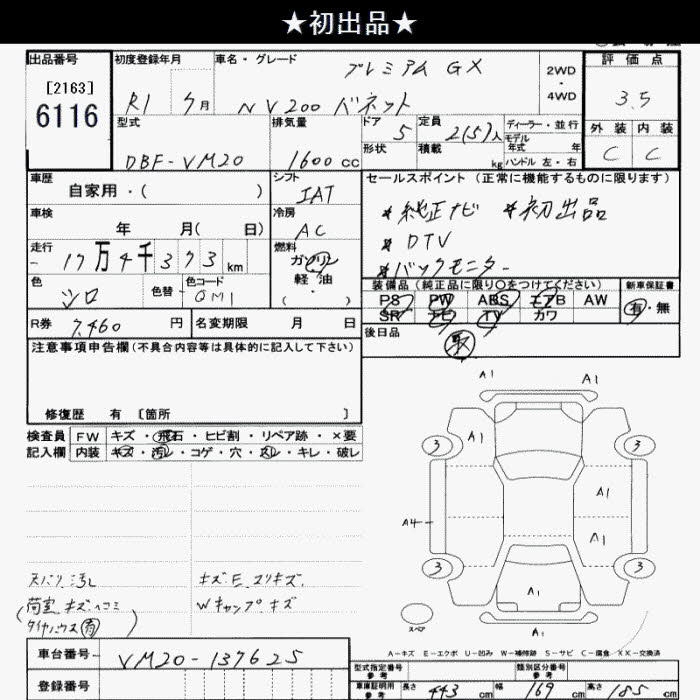 ★初出品★
出品番号 初度登録年月 車名・グレード 評価点
[2163] プレミアム GX 2WD
6116 R1 月 NV200 バネット ・4WD 3.5
型式 排気量 ドア 5 定員 2(5)人 ディーラー・並行 外装 内装
モデル年式 年
DBF-VM20 1600cc 形状 積載 kg ハンドル 左・右 C C
車歴 シフト セールスポイント(正常に機能するものに限ります)
自家用・( ) IAT
車検 冷房 *純正ナビ *初出品
年 月( 日) AC *DTV
走行 燃料
17万4千373km ガソリン *バックモニター
軽油
色 色替 色コード ・( ) 装備品(純正品に限り○をつけてください) 新車保証書
シロ QM1 PS PW ABS エアB AW 有・無
SR ナビ TV カワ
R券 7,460円 名変期限 月 日 後日品
注意事項申告欄(不具合内容等は具体的に記入して下さい)
修復歴 有 [箇所 ]
A1 A1
検査員 FW キズ・飛石・ヒビ割・リペア跡・×要
記入欄 内装 キズ・汚レ・コゲ・穴・スレ・キレ・破レ
3 A1 3
A1
A4 A1
3 3
A1
天バリ汚レ キズE スリキズ
荷室キズヘコミ Wキャップキズ
タイヤハウス有
スペア A1
A-キズ E-エクボ U-凹み W-補修跡 S-サビ C-腐食 XX-交換済
車台番号 VM20-137625
登録番号
型式指定番号 参考 類別区分番号 参考
車庫証明用 参考 長さ 443 cm 幅 169 cm 高さ 185 cm